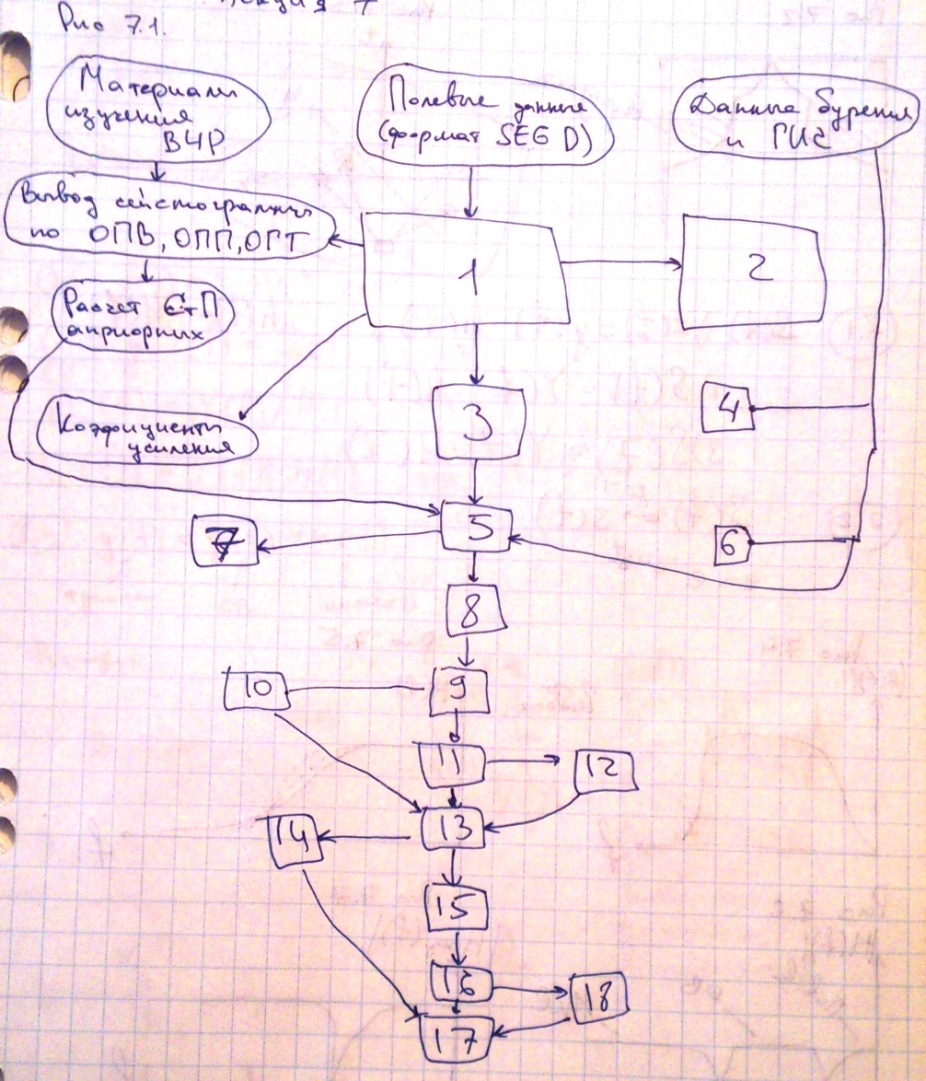 Лекция 7
Рис 7.1.
Материалы
изучения
ВЧР
Полевые данные
(формат SEG D)
Данные бурения
и ГИС
Вывод сейсмограммы
по ОПВ, ОПП, ОГТ
1
2
Расчет СтП
априорных
3
4
Коэффициенты
усиления
5
7
6
8
10
9
11
12
14
13
15
16
18
17